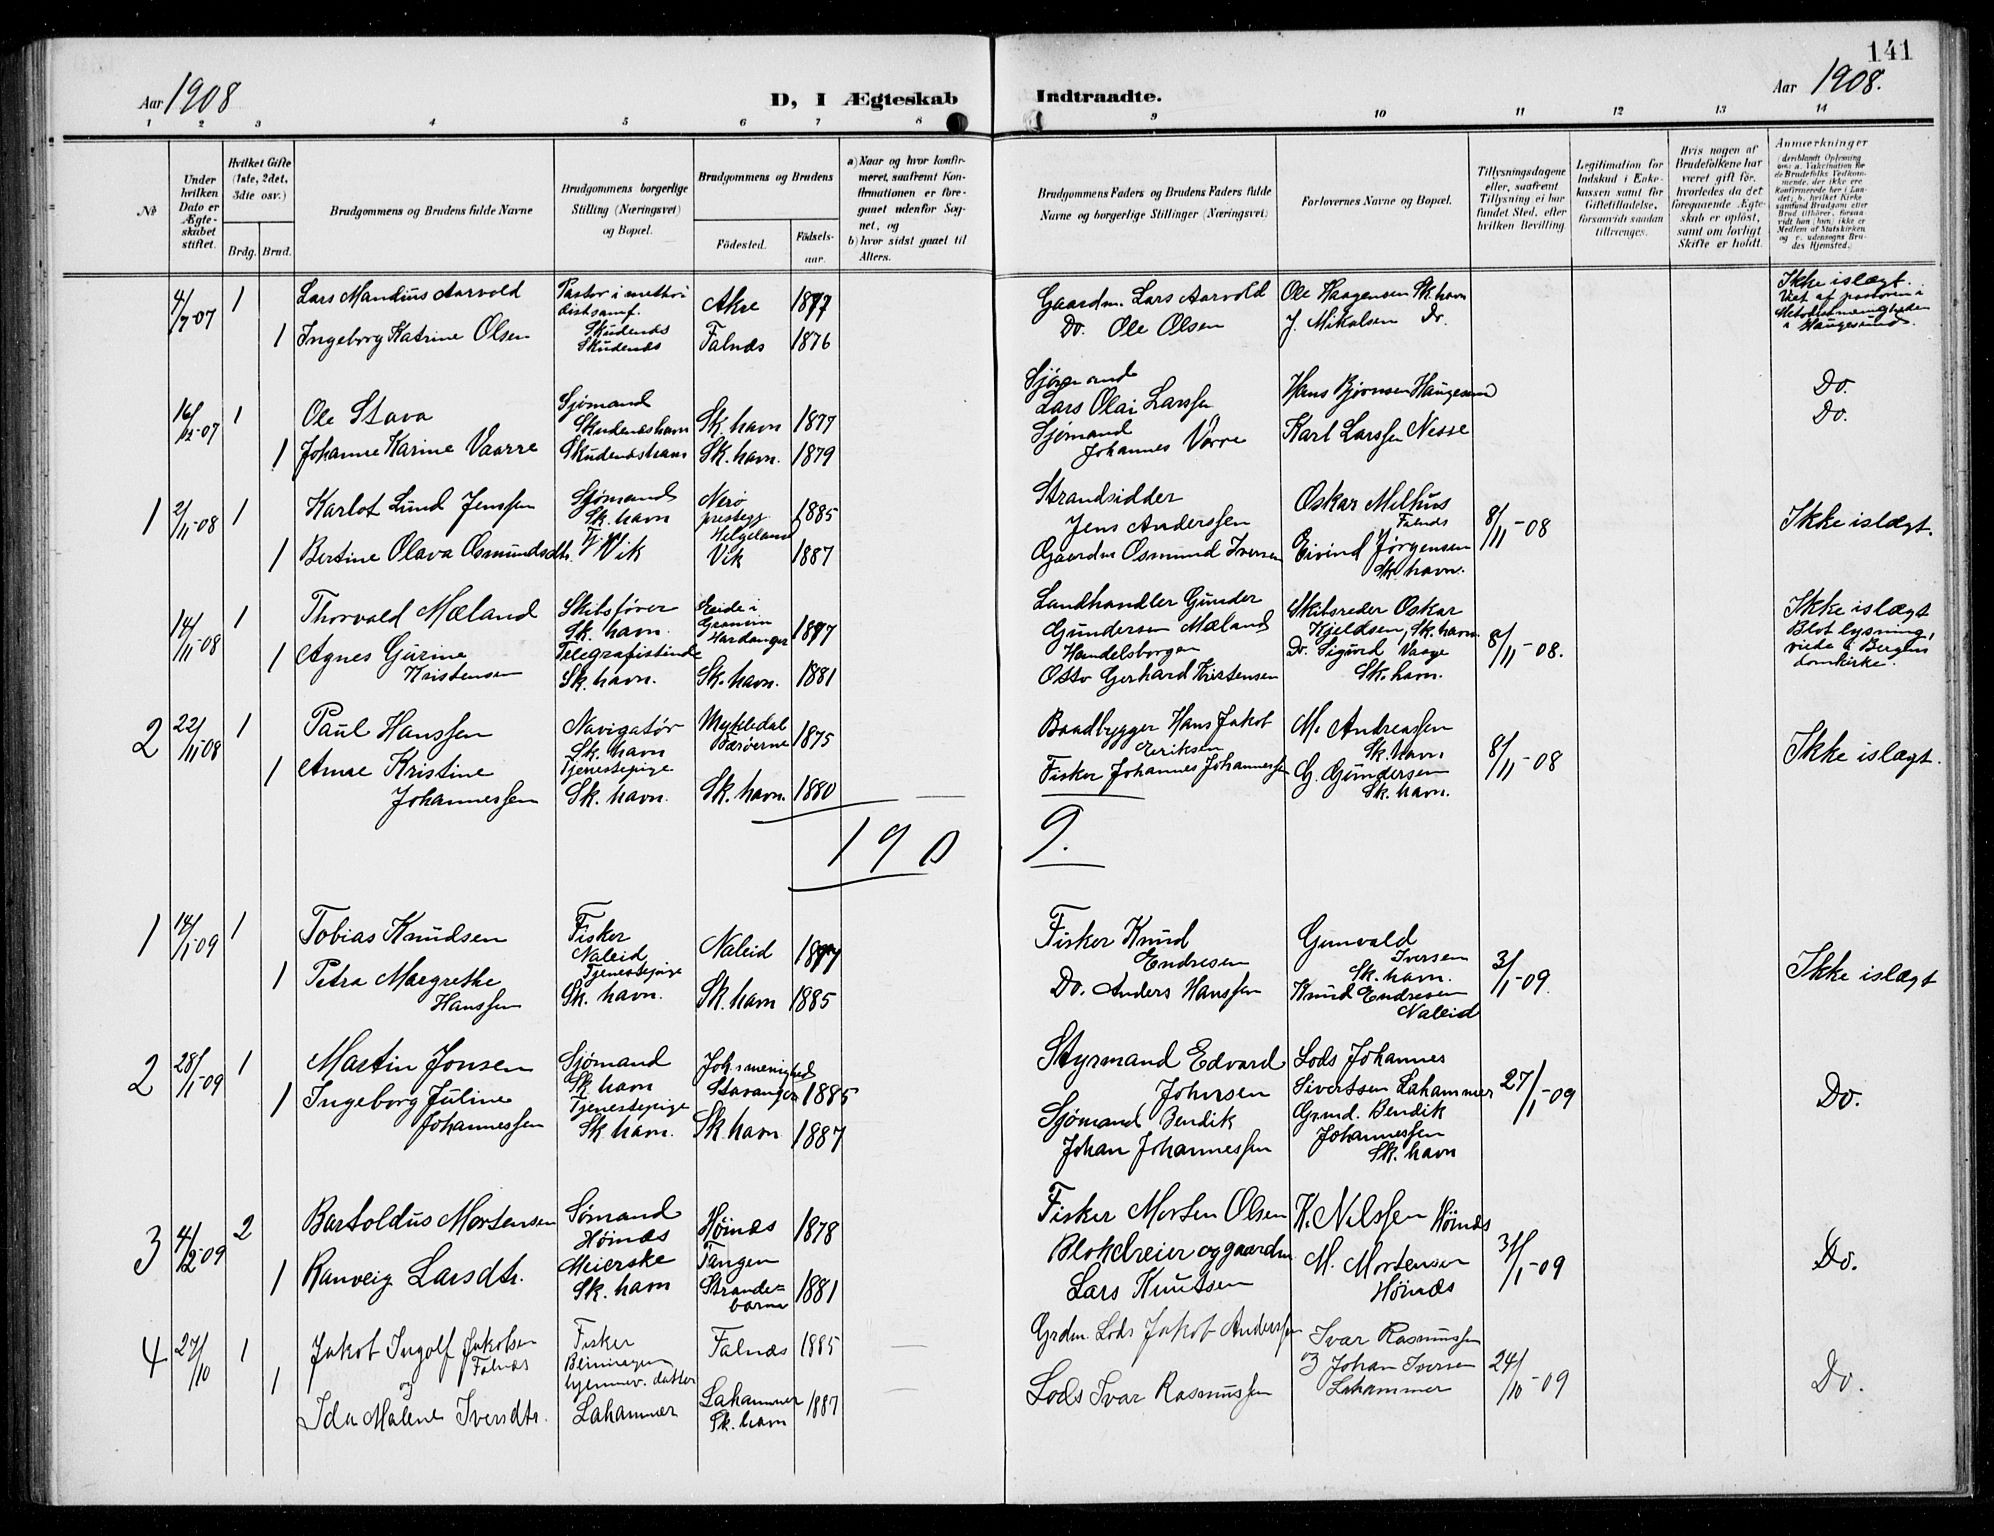 141
Aar 1908
D, I Ægteskab Indtraadte.
Aar 1908.
1 2 3 4 5 6 7 8 9 10 11 12 13 14
No
Under hvilken Dato er Ægteskabet stiftet.
Hvilket Gifte (1ste, 2det, 3die osv.)
Brdg. Brud.
Brudgommens og Brudens fulde Navne
Brudgommens borgerlige Stilling (Næringsvei) og Bopæl.
Brudgommens og Brudens
Fødested.
Fødselsaar.
a) Naar og hvor konfirmeret, saafremt Konfirmationen er foregaaet udenfor Sognet, og
b) hvor sidst gaaet til Alters.
Brudgommens Faders og Brudens Faders fulde Navne og borgerlige Stillinger (Næringsvei)
Forlovernes Navne og Bopæl.
Tillysningsdagene eller, saafremt Tillysning ei har fundet Sted, efter hvilken Bevilling.
Legitimation for Indskud i Enkekassen samt for Giftetilladelse, forsaavidt saadan tiltrænges.
Hvis nogen af Brudefolkene har været gift før, hvorledes da det foregaaende Ægteskab er opløst, samt om lovligt Skifte er holdt.
Anmærkninger
4/7-07 1 Lars Mandius Aarvold Pastor i methodistsamf. Skudenæs Akre 1877 Gaardm. Lars Aarvold Ole Haagensen Sk.havn Ikke islægt. Viet af pastoren i Methodistmenigheden i Haugesund.
1 Ingeborg Katrine Olsen Skudenæs Falnæs 1876 Do. Ole Olsen J. Mikalsen Do.
16/12-07 1 Ole Stava Sjømand Skudenæshavn Sk. havn 1877 Sjømand Lars Olai Larssen Hans Bjørnsen Haugesund Do.
1 Johanne Karine Vaarre Skudenæshavn Sk. havn. 1879 Sjømand Johannes Vorre Karl Larssen Nesse Do.
1 2/11-08 1 Karlot Lund Jenssen Sjømand Sk. havn Nerø prestegj. Helgeland 1885 Strandsidder Jens Anderssen Oskar Melhus Falnæs 8/11-08 Ikke islægt.
1 Bertine Olava Osmundsdtr. Vik Vik 1887 Gaardm Osmund Iversen Eivind Jørgensen Sk. havn.
14/11-08 1 Thorvald Mæland Skibsfører Sk. havn. Eeide i Granvin Hardanger 1877 Landhandler Gunder Gundersen Mæland Skibsreder Oskar Kjeldsen, Sk. havn 8/11-08. Ikke islægt Blot lysning, viede i Bergens domkirke.
1 Agnes Gurine Kristensen Telegrafistinde Sk. havn. Sk. havn. 1881 Handelsborger Otto Gerhard Kristensen Do. Sigurd Vaage Sk. havn.
2 22/11-08 1 Paul Hanssen Navigatør Sk. havn Mykledal Færøerne 1875 Baadbygger Hans Jakob Eeriksen M. Andreassen Sk. havn 8/11-08 Ikke islægt.
1 Anne Kristine Johannessen Tjenestepige Sk. havn. Sk. havn. 1880 Fisker Johannes Johannessen G. Gundersen Sk. havn.
190 9.
1 14/1-09 1 Tobias Knudsen Fisker Naleid Naleid 1877 Fisker Knud Endresen Gunvald Iversen Sk. havn. 3/1-09. Ikke islægt
1 Petra Margrethe Hanssen Tjenestepige Sk. havn. Sk. havn 1885 Do. Anders Hanssen Knud Endresen Naleid
2 28/1-09 1 Martin Jonsen Sjømand Sk. havn Joh.s menighed Stavanger 1885 Styrmand Edvard Johnsen Lods Johannes Sivertsen Lahammer 27/1-09 Do.
1 Ingeborg Juline Johannessen Tjenestepige Sk. havn. Sk. havn 1887 Sjømand Bendik Johan Johannessen Grmd. Bendik Johannessen Sk. havn
3 4/12-09 2 Bartoldus Mortensen Sømand Høinæs Høinæs 1878 Fisker Morten Olsen K. Nilssen Høinæs 31/1-09 Do.
1 Ranveig Larsdtr. Meierske Sk. havn Tangen Strandebarm 1881 Blokdreier og gaardm. Lars Knutsen M. Mortensen Høinæs
4 27/10 1 Jakob Ingolf Jakobsen Falnæs Fisker Falnæs 1885 Grdm. Lods Jakob Anderssen Ivar Rasmussen 24/10-09 Do.
1 og Ida Malene Iversdtr. hjemmev. datter Lahammer Lahammer Sk. havn 1887 Lods Ivar Rasmussen og Johan Iversen Lahammer